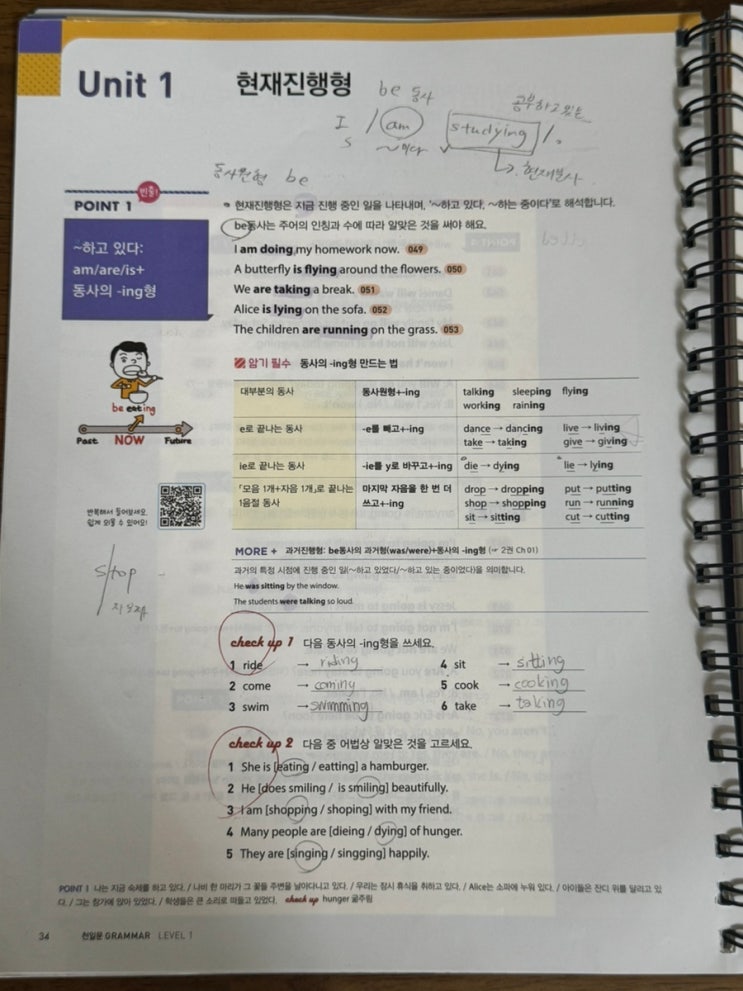 Unit 1 현재진행형
be 동사
공부하고 있는
I / am studying /.
S ~이다
현재분사
동사원형 be
빈출!
POINT 1
~하고 있다:
am/are/is+
동사의 -ing형
현재진행형은 지금 진행 중인 일을 나타내며, '~하고 있다, ~하는 중이다'로 해석합니다.
be동사는 주어의 인칭과 수에 따라 알맞은 것을 써야 해요.
I am doing my homework now. 049
A butterfly is flying around the flowers. 050
We are taking a break. 051
Alice is lying on the sofa. 052
The children are running on the grass. 053
be eating
Past NOW Future
암기 필수 동사의 -ing형 만드는 법
대부분의 동사 동사원형+-ing talking sleeping flying
working raining
e로 끝나는 동사 -e를 빼고+-ing dance → dancing live → living
take → taking give → giving
ie로 끝나는 동사 -ie를 y로 바꾸고+-ing die → dying lie → lying
「모음 1개+자음 1개」로 끝나는 마지막 자음을 한 번 더 drop → dropping put → putting
1음절 동사 쓰고+-ing shop → shopping run → running
sit → sitting cut → cutting
반복해서 들어보세요.
쉽게 외울 수 있어요!
MORE + 과거진행형: be동사의 과거형(was/were)+동사의 -ing형 (☞ 2권 Ch 01)
과거의 특정 시점에 진행 중인 일(~하고 있었다/~하고 있는 중이었다)을 의미합니다.
He was sitting by the window.
The students were talking so loud.
stop
check up 1 다음 동사의 -ing형을 쓰세요.
1 ride → riding 4 sit → sitting
2 come → coming 5 cook → cooking
3 swim → swimming 6 take → taking
check up 2 다음 중 어법상 알맞은 것을 고르세요.
1 She is [eating / eatting] a hamburger.
2 He [does smiling / is smiling] beautifully.
3 I am [shopping / shoping] with my friend.
4 Many people are [dieing / dying] of hunger.
5 They are [singing / singging] happily.
POINT 1 나는 지금 숙제를 하고 있다. / 나비 한 마리가 그 꽃들 주변을 날아다니고 있다. / 우리는 잠시 휴식을 취하고 있다. / Alice는 소파에 누워 있다. / 아이들은 잔디 위를 달리고 있
다. / 그는 창가에 앉아 있었다. / 학생들은 큰 소리로 떠들고 있었다. check up hunger 굶주림
34 천일문 GRAMMAR LEVEL 1